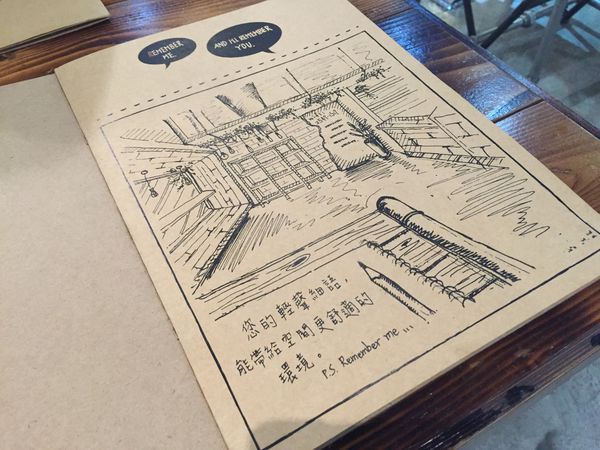 REMEMBER
ME.
AND I'LL REMEMBER
YOU.
您的輕聲細語，
能帶給空間更舒適的
環境。
P.S. Remember me ...